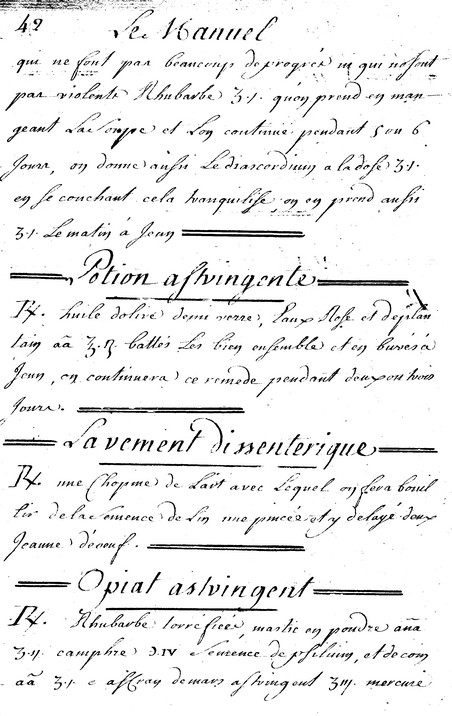 42 Le Manuel
qui ne font pas beaucoup de progrès ni qui ne sont
pas violents Rhubarbe ʒ·1· qu'on prend en man
geant La Soupe et L'on continue pendant 5 ou 6
Jours, on donne aussi Le diascordium a la dose ʒ·1·
en se couchant cela tranquilise, on en prend aussi
ʒ·1· Le matin à Jeun
Potion astringente
℞. huile d'olive demi verre, Eaux Rose et de plan
tain aã ʒ·ij· battés Les bien ensemble et en buvés à
Jeun, on continuera ce remede pendant deux ou trois
Jours.
Lavement dissenterique
℞. une Chopine de Lait avec Lequel on fera bouil
lir de la Semence de Lin une pincée et y delayé deux
Jeaune d'oeuf.
Opiat astringent
℞. Rhubarbe torrefiée, mastic en poudre aña
ʒ·ij· camphre ℈·IV Semence de psilium, et de coin
aã ʒ·1· de mars astringent ʒiij· mercure